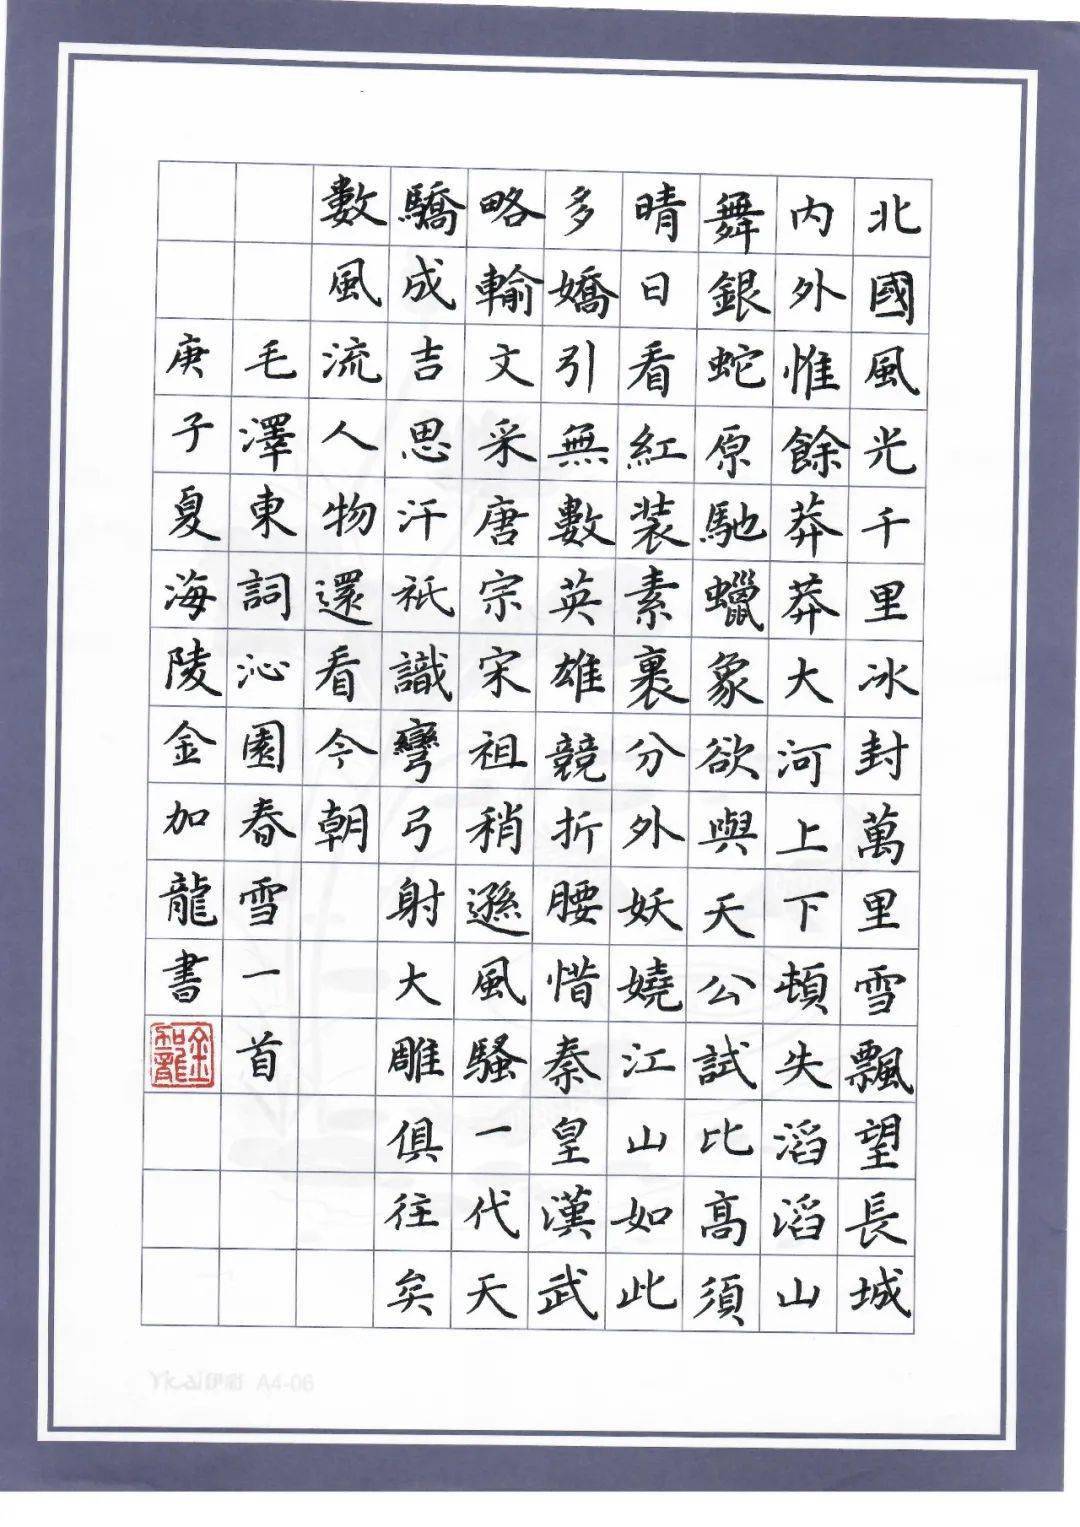 北國風光千里冰封萬里雪飄望長城
内外惟餘莽莽大河上下頓失滔滔山
舞銀蛇原馳蠟象欲與天公試比高須
晴日看紅装素裹分外妖嬈江山如此
多嬌引無數英雄競折腰惜秦皇漢武
略輸文采唐宗宋祖稍遜風騷一代天
驕成吉思汗祇識彎弓射大雕俱往矣
數風流人物還看今朝
毛澤東詞沁園春雪一首
庚子夏海陵金加龍書
金加龍
A4-06